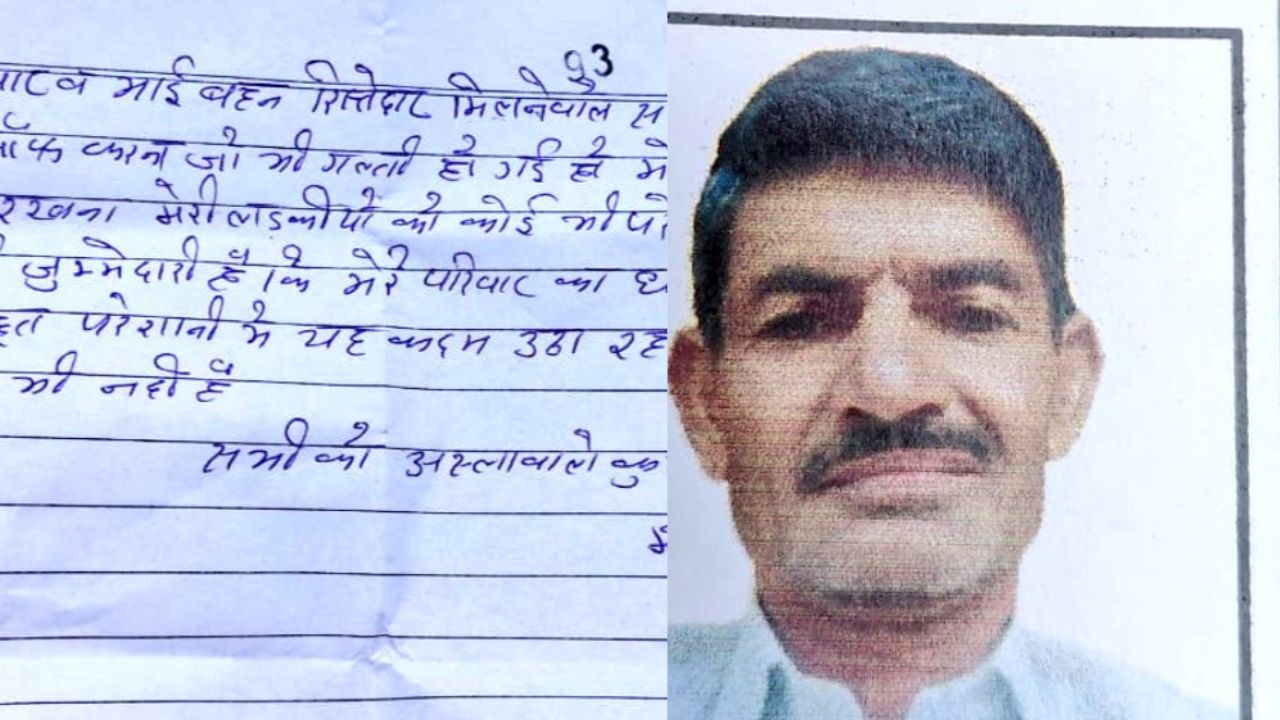 93
व भाई बहन रिश्तेदार मिलनेवाले स
करना जो भी गलती हो गई हो मे
रखना मेरी लड़कीयो को कोई भी परे
जुम्मेदारी है कि मेरे परिवार का ध
परेशानी मे यह कदम उठा रह
भी नही है
सभी को अस्लावाले कु